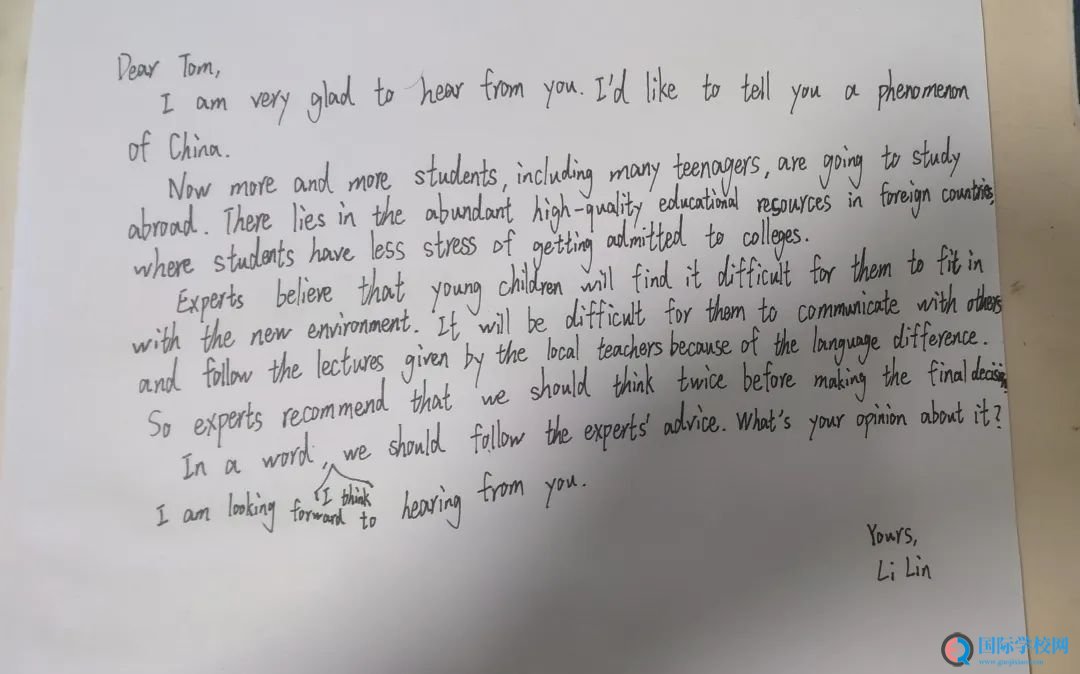 Dear Tom,
I am very glad to hear from you. I'd like to tell you a phenomenon
of China.
Now more and more students, including many teenagers, are going to study
abroad. There lies in the abundant high-quality educational resources in foreign countries,
where students have less stress of getting admitted to colleges.
Experts believe that young children will find it difficult for them to fit in
with the new environment. It will be difficult for them to communicate with others
and follow the lectures given by the local teachers because of the language difference.
So experts recommend that we should think twice before making the final decision
In a word, we should follow the experts' advice. What's your opinion about it?
I think
I am looking forward to hearing from you.
Yours,
Li Lin
国际学校网
www.guojixuexiao.com